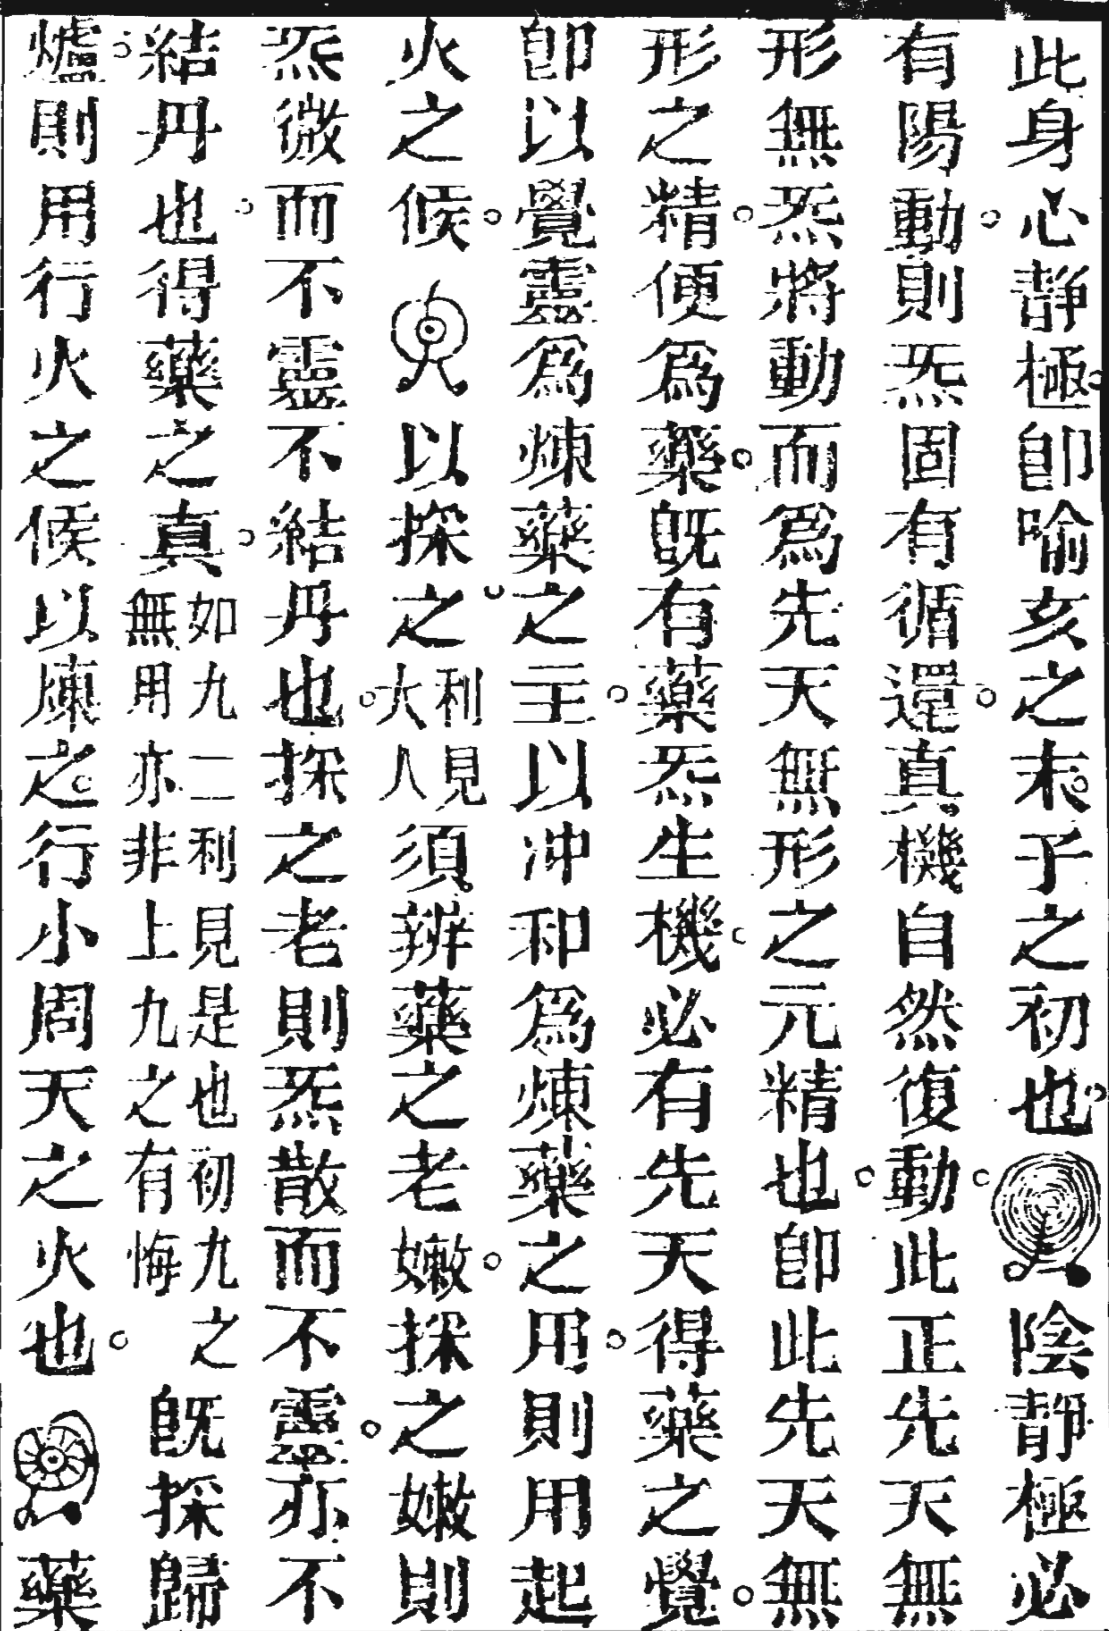 此身心靜極。卽喻亥之末。子之初也。陰靜極必
有陽動。則炁固有循還。真機自然復動。此正先天無
形無炁將動而爲先天無形之元精也。卽此先天無
形之精。便爲藥。旣有藥炁生機。必有先天得藥之覺。
卽以覺靈爲煉藥之主。以冲和爲煉藥之用。則用起
火之候。以採之。利見大人須辨藥之老嫩。採之嫩則
炁微而不靈不結丹也。採之老則炁散而不靈。亦不
結丹也。得藥之真。如九二利見是也初九之無用亦非上九之有悔旣採歸
爐。則用行火之候以煉之。行小周天之火也。藥